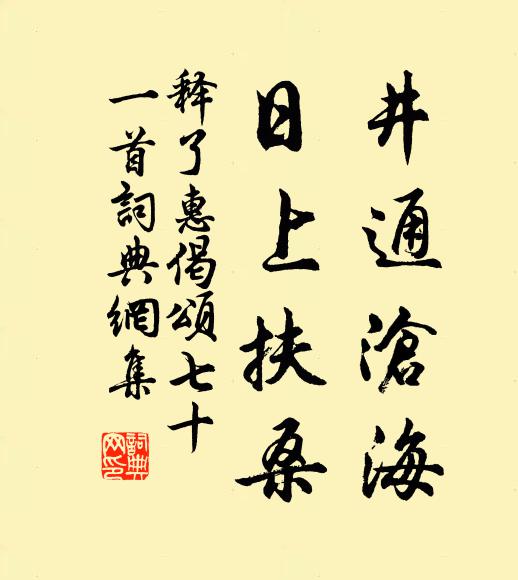 井通滄海
日上扶桑
释了惠偈頌七十
一首詞典網集
詞典網印